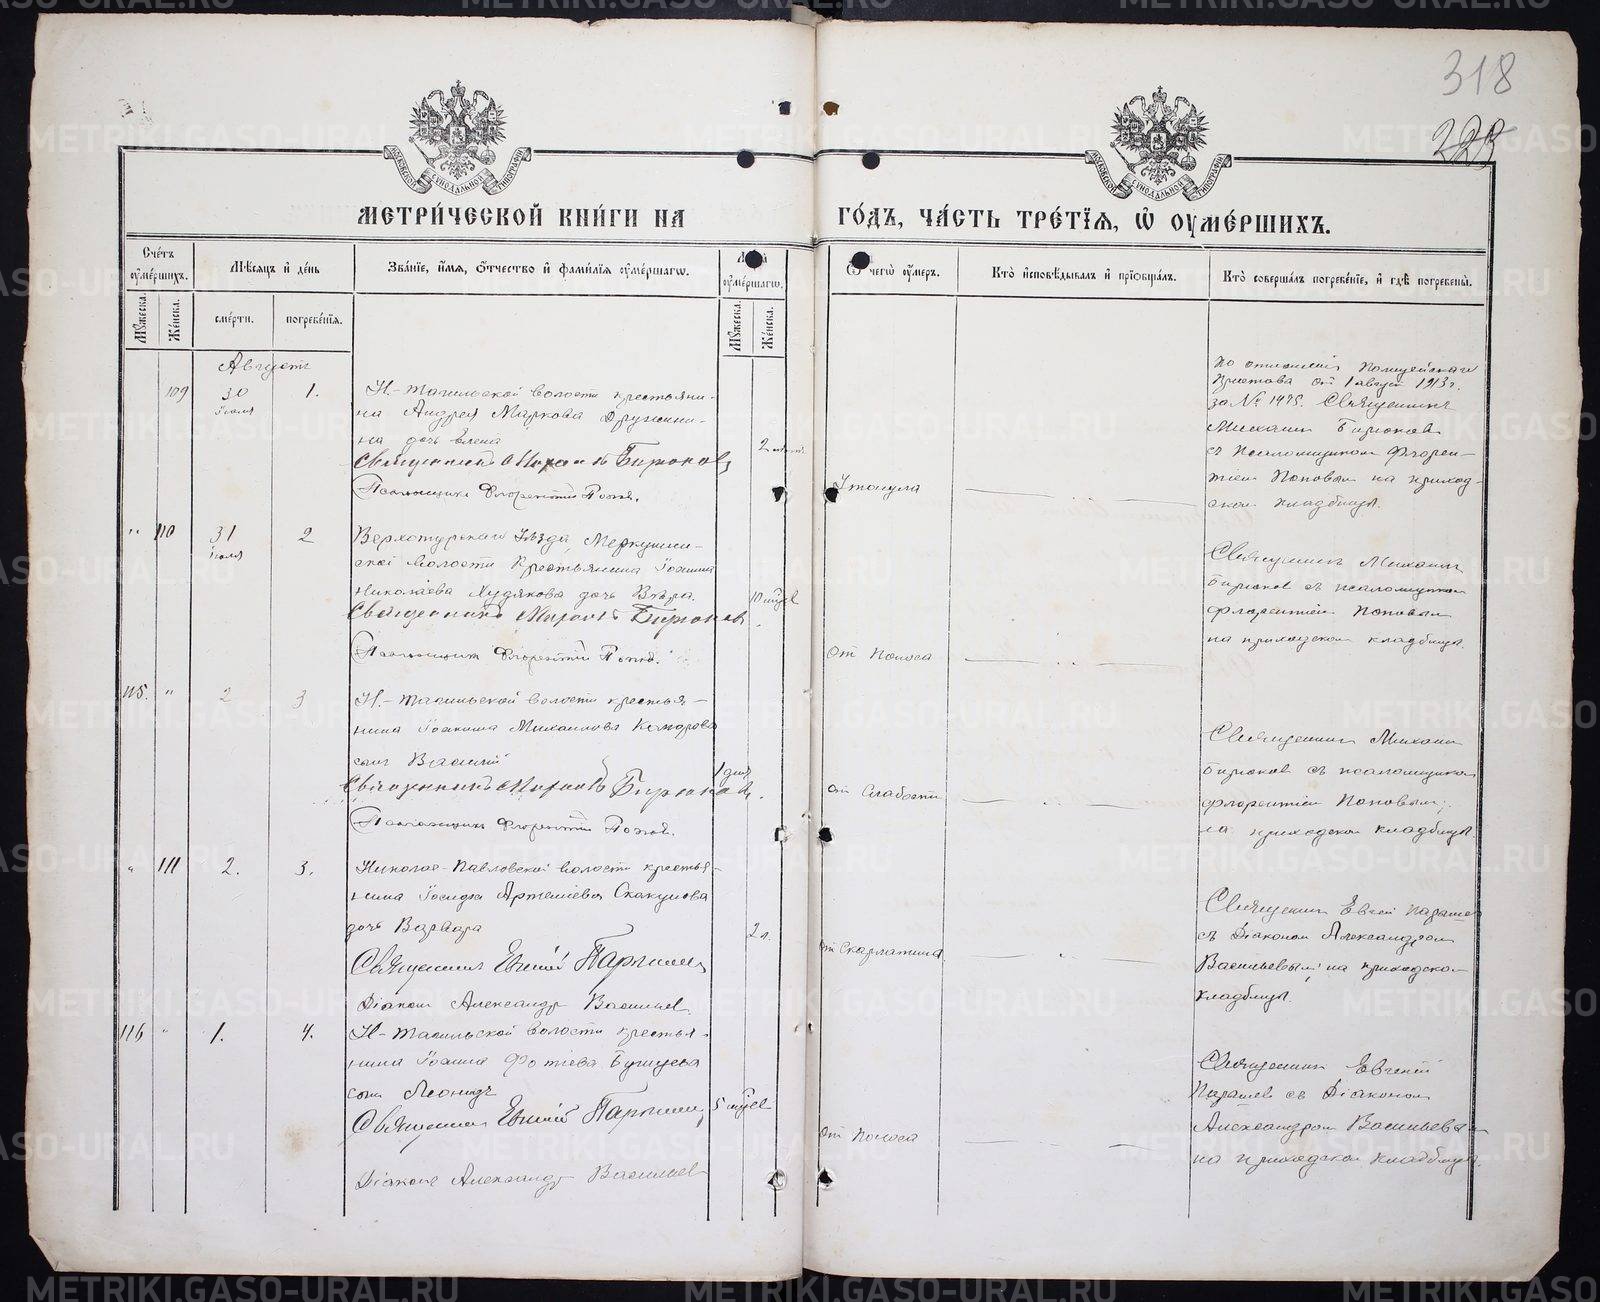 318
223
МОСКОВСКОЙ СѴНОДАЛЬНОЙ ТИПОГРАФІИ
МОСКОВСКОЙ СѴНОДАЛЬНОЙ ТИПОГРАФІИ
МЕТРИ́ЧЕСКОЙ КНИ́ГИ НА
ГО́ДЪ, ЧА́СТЬ ТРЕ́ТЇѦ, Ѡ҆ ОУМЕ́РШИХЪ.
Сче́тъ оуме́ршихъ.
Мѣ́сѧцъ и҆ де́нь
Зва́нїе, и҆́мѧ, ѻ҆́тчество и҆ фами́лїѧ оуме́ршагѡ.
оуме́ршагѡ.
Ѿ чегѡ̀ оу҆́меръ.
Кто̀ и҆сповѣ́дывалъ и҆ прїѡбща́лъ.
Кто̀ соверша́лъ погребе́нїе, и҆ гдѣ̀ погребены̀.
Мꙋ́жеска.
Же́нска.
сме́рти.
погребе́нїѧ.
Мꙋ́жеска.
Же́нска.
Августъ
109 30 Іюля 1.
Н.-Тагильской волости крестьяни-
на Андрея Маркова Дружини-
на дочь Елена
Священникъ Михаилъ Бирюковъ
Псаломщикъ Флорентій Поповъ.
2
Утонула
По отношенію Полицейскаго
Пристава от 1 август 1913 г.
за № 1475. Священникъ
Михаилъ Бирюковъ
съ Псаломщиком Флорен-
тіем Поповым на приход-
ском кладбище.
" 110 31 Іюля 2
Верхотурскаго Уѣзда, Меркушин-
ской волости Крестьянина Іоанна
Николаева Худякова дочь Вѣра.
Священникъ Михаилъ Бирюковъ.
Псаломщикъ Флорентій Поповъ.
10 мѣс
От Поноса
Священникъ Михаилъ
Бирюков съ псаломщиком
Флорентіем Поповым
на приходском кладбище.
115. " 2 3
Н.-Тагильской волости крестья-
нина Іоанна Михаилова Комарова
сын Василій
Священникъ Михаилъ Бирюковъ.
Псаломщикъ Флорентій Поповъ.
1 день
От Слабости
Священник Михаил
Бирюков съ псаломщиком
Флорентіем Поповым;
на приходском кладбище
" 111 2. 3.
Николае-Павловской волости крестья-
нина Іосифа Артеміева Скакунова
дочь Варвара
Священник Евгеній Парышев
Діакон Александр Васильев
2 л.
От Скарлатина
Священник Евгеній Парышев
съ Діаконом Александром
Васильевым на приходском
кладбище.
116 " 1. 4.
Н-Тагильской волости крестья-
нина Іоанна Фотіева Бушуева
сын Леонидъ
Священник Евгеній Парышев
Діакон Александр Васильев
5 мѣс
От Поноса
Священник Евгеній
Парышев съ Діаконом
Александром Васильевым
на приходском кладбище.
METRIKI.GASO-URAL.RU